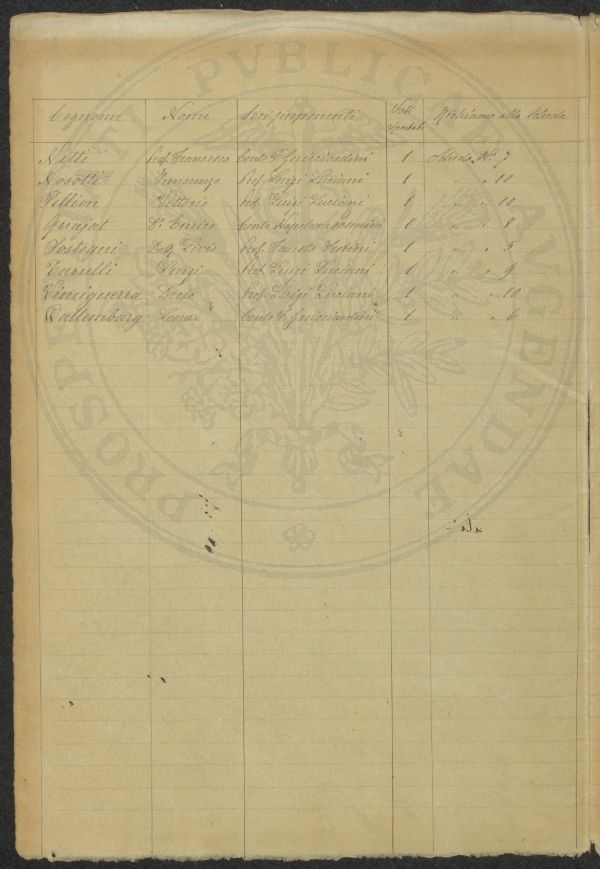 Cognome Nome Soci proponenti Voti riportati Richiamo alla scheda
Nitti Prof. Francesco Conte F. Guicciardini 1 Scheda No. 7
Nosotti Innocenzo Prof. Luigi Luciani 1 " " 10
Pellion Vittorio Prof. Luigi Luciani 1 " " 10
Quajat Dr. Enrico Conte Napoleone Passerini 1 " " 8
Sostegni Dott. Livio Prof. Fausto Sestini 1 " " 5
Luigi Prof. Luigi Luciani 1 " " 9
Vinciguerra Decio Prof. Luigi Luciani 1 " " 10
Wollemborg Leone Conte F. Guicciardini 1 " " 6
PROSPERITATI PVBLICAE AVGENDAE